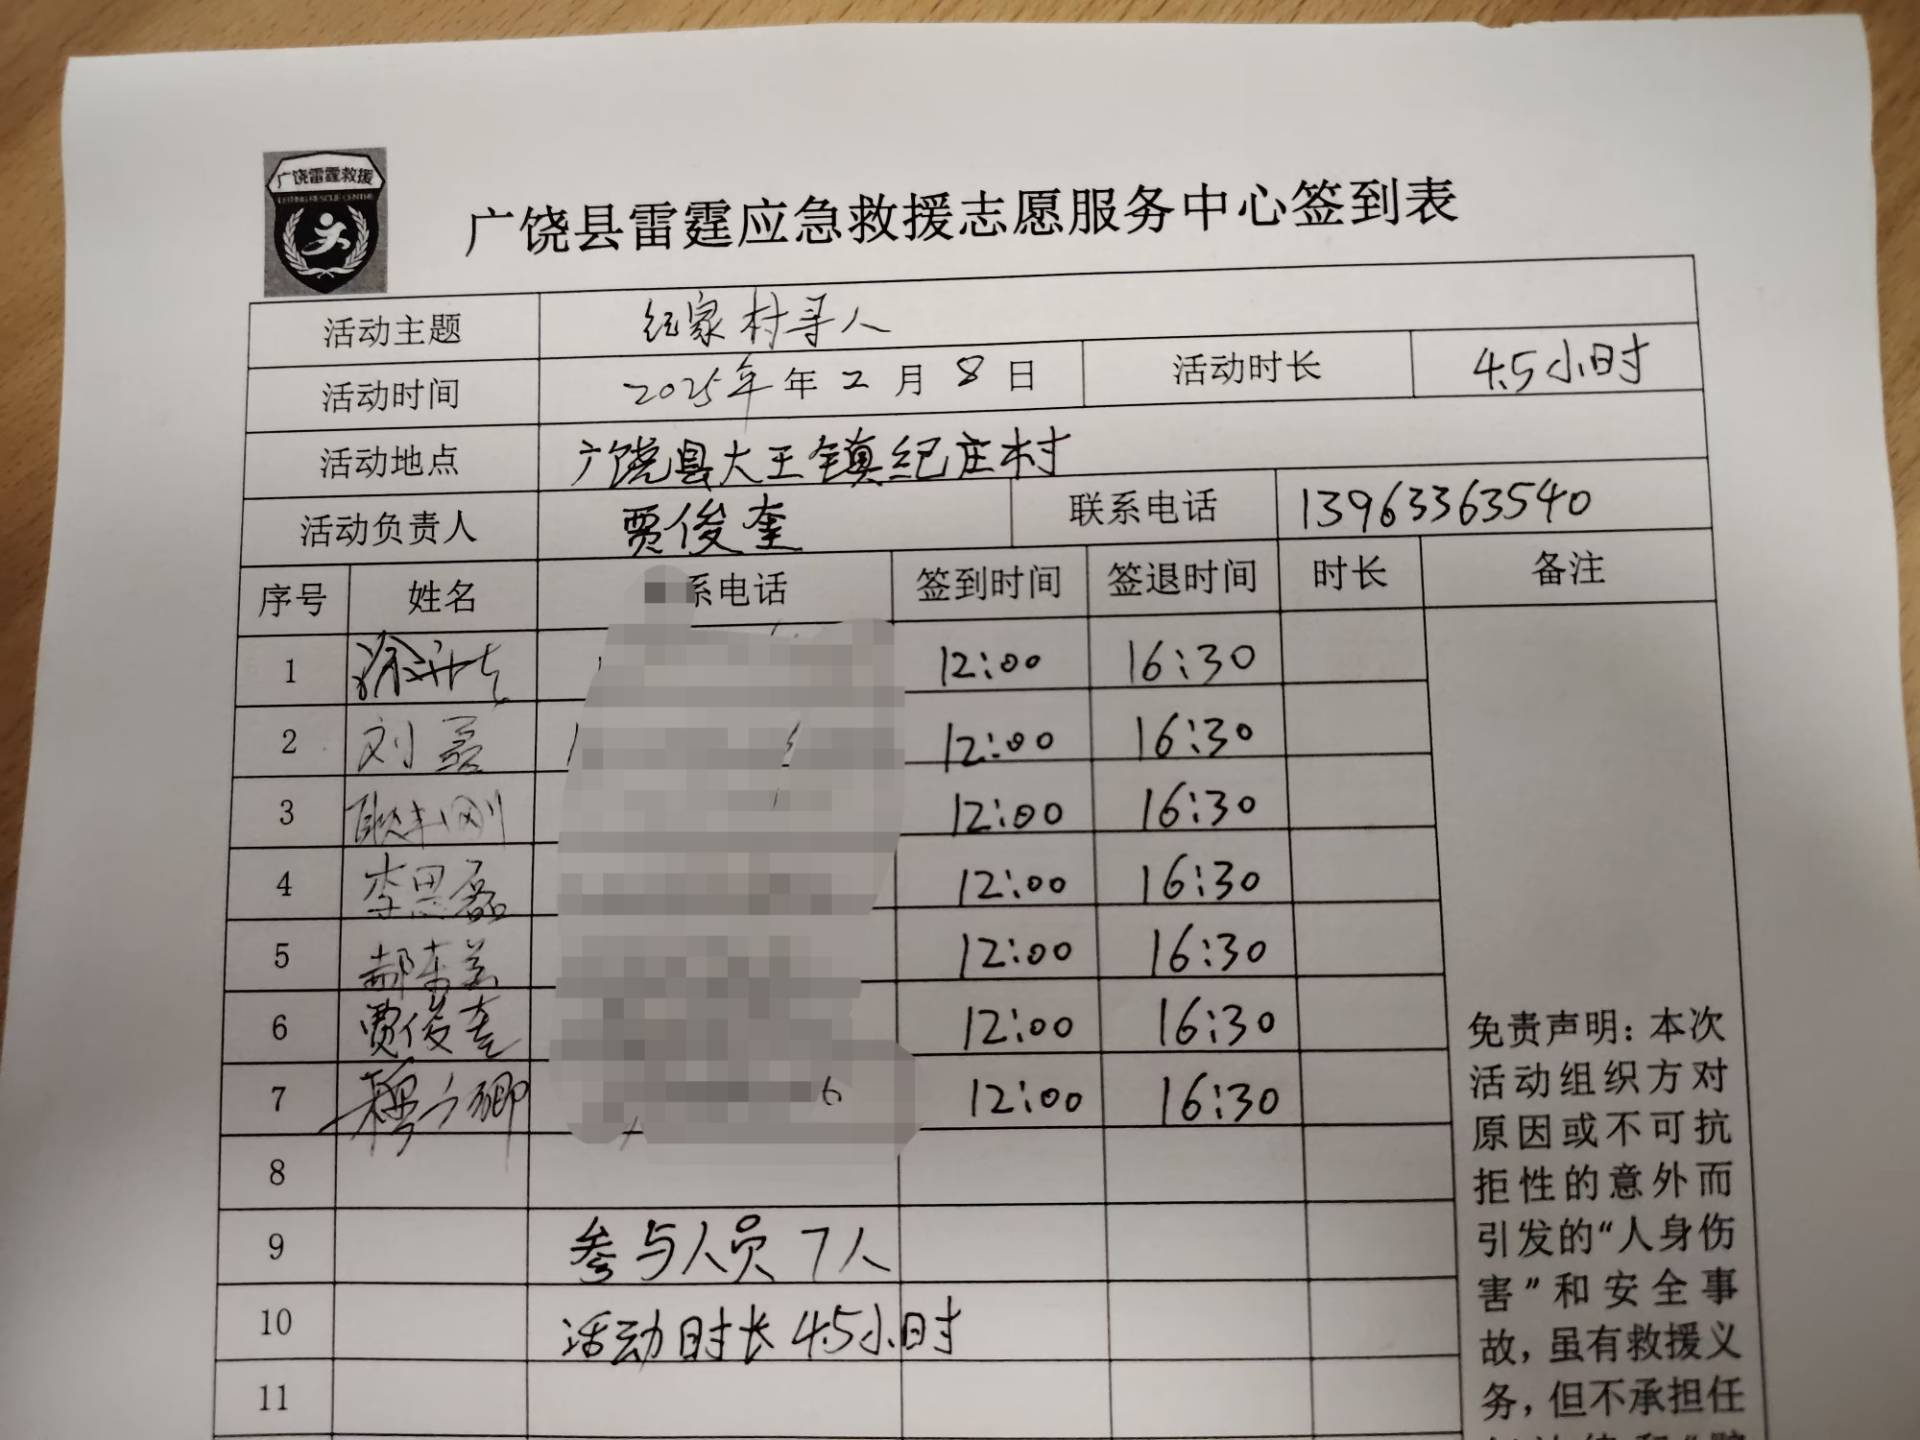 广饶雷霆救援
LEITING RESCUE CENTRE
广饶县雷霆应急救援志愿服务中心签到表
活动主题 纪家村寻人
活动时间 2025年 年 2 月 8 日 活动时长 4.5小时
活动地点 广饶县大王镇纪庄村
活动负责人 贾俊奎 联系电话 13963363540
序号 姓名 系电话 签到时间 签退时间 时长 备注
1 12:00 16:30
2 刘磊 12:00 16:30
3 12:00 16:30
4 李思磊 12:00 16:30
5 郝东 12:00 16:30
6 贾俊奎 12:00 16:30
7 12:00 16:30
8
9 参与人员7人
10 活动时长4.5小时
11
免责声明：本次
活动组织方对
原因或不可抗
拒性的意外而
引发的“人身伤
害”和安全事
故，虽有救援义
务，但不承担任